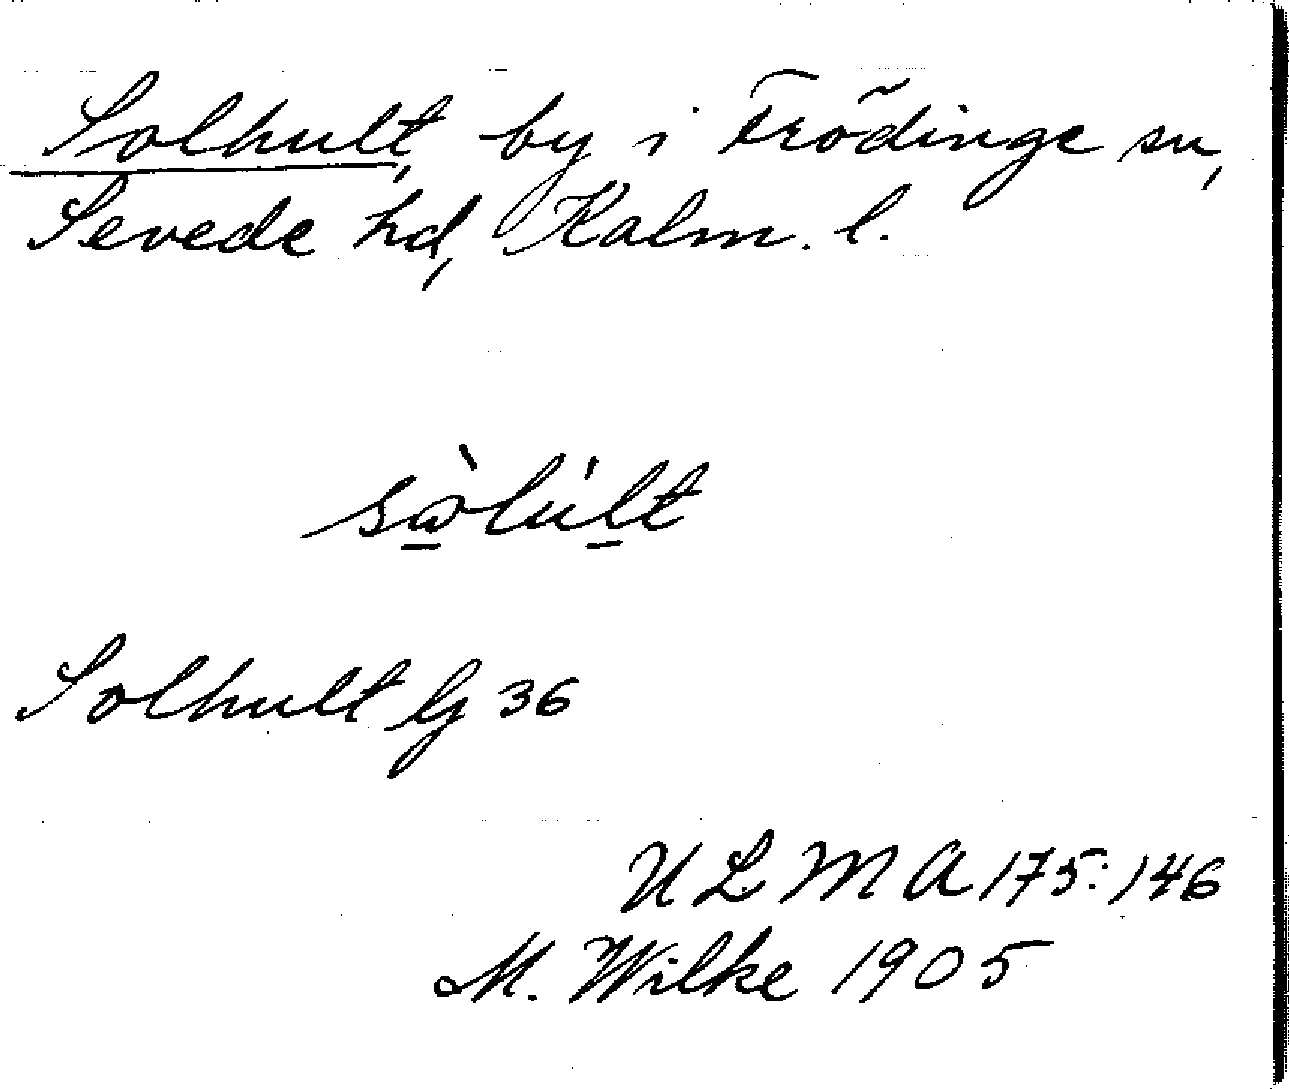 Solhult, by i Frödinge sn,
Sevede hd, Kalm. l.
sɷ̀lúlt
Solhult Gj 36
ULMA 175:146
M. Wilke 1905